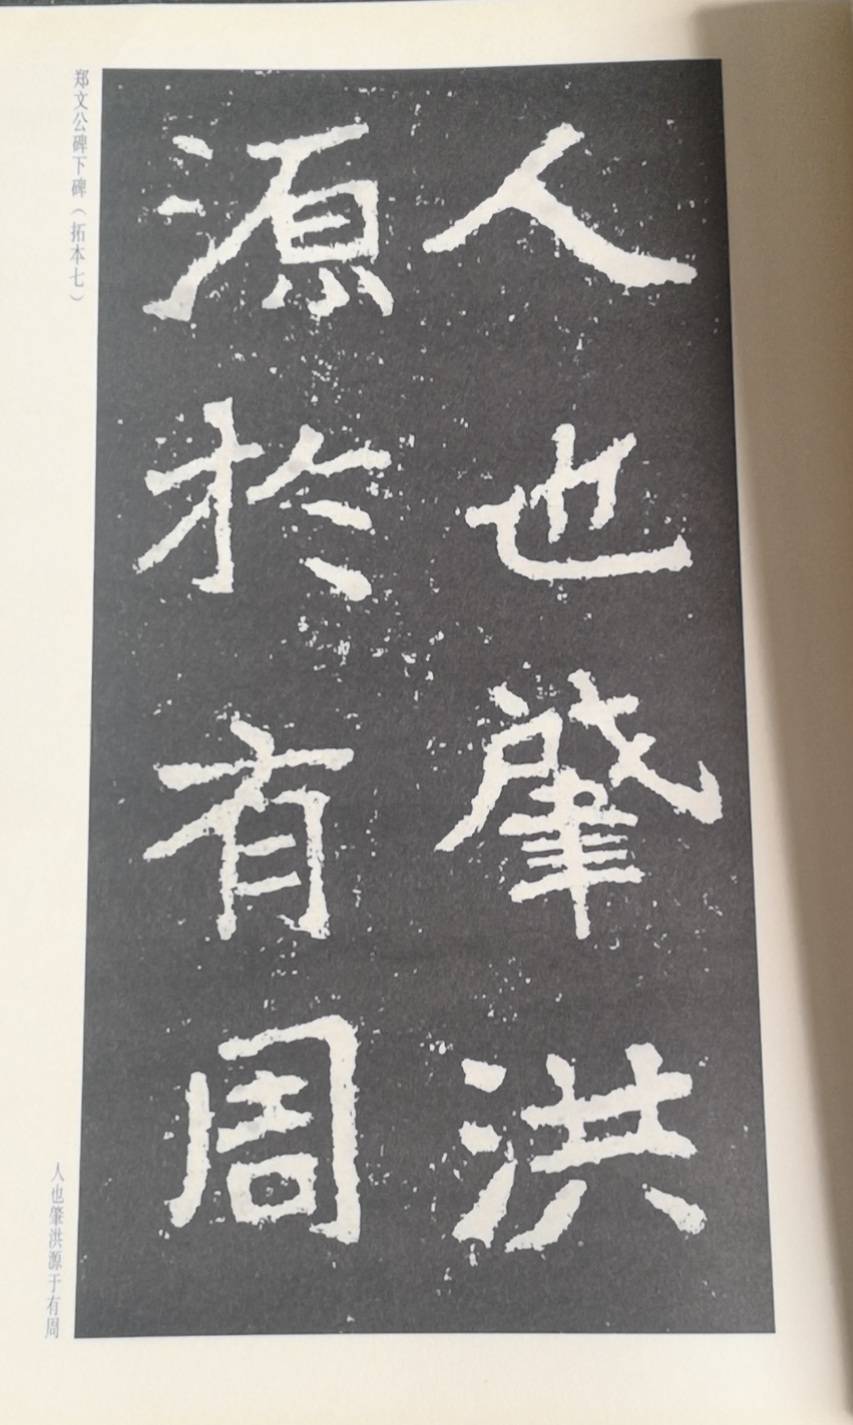 人也肇洪
源於有周
郑文公碑下碑（拓本七）
人也肇洪源于有周